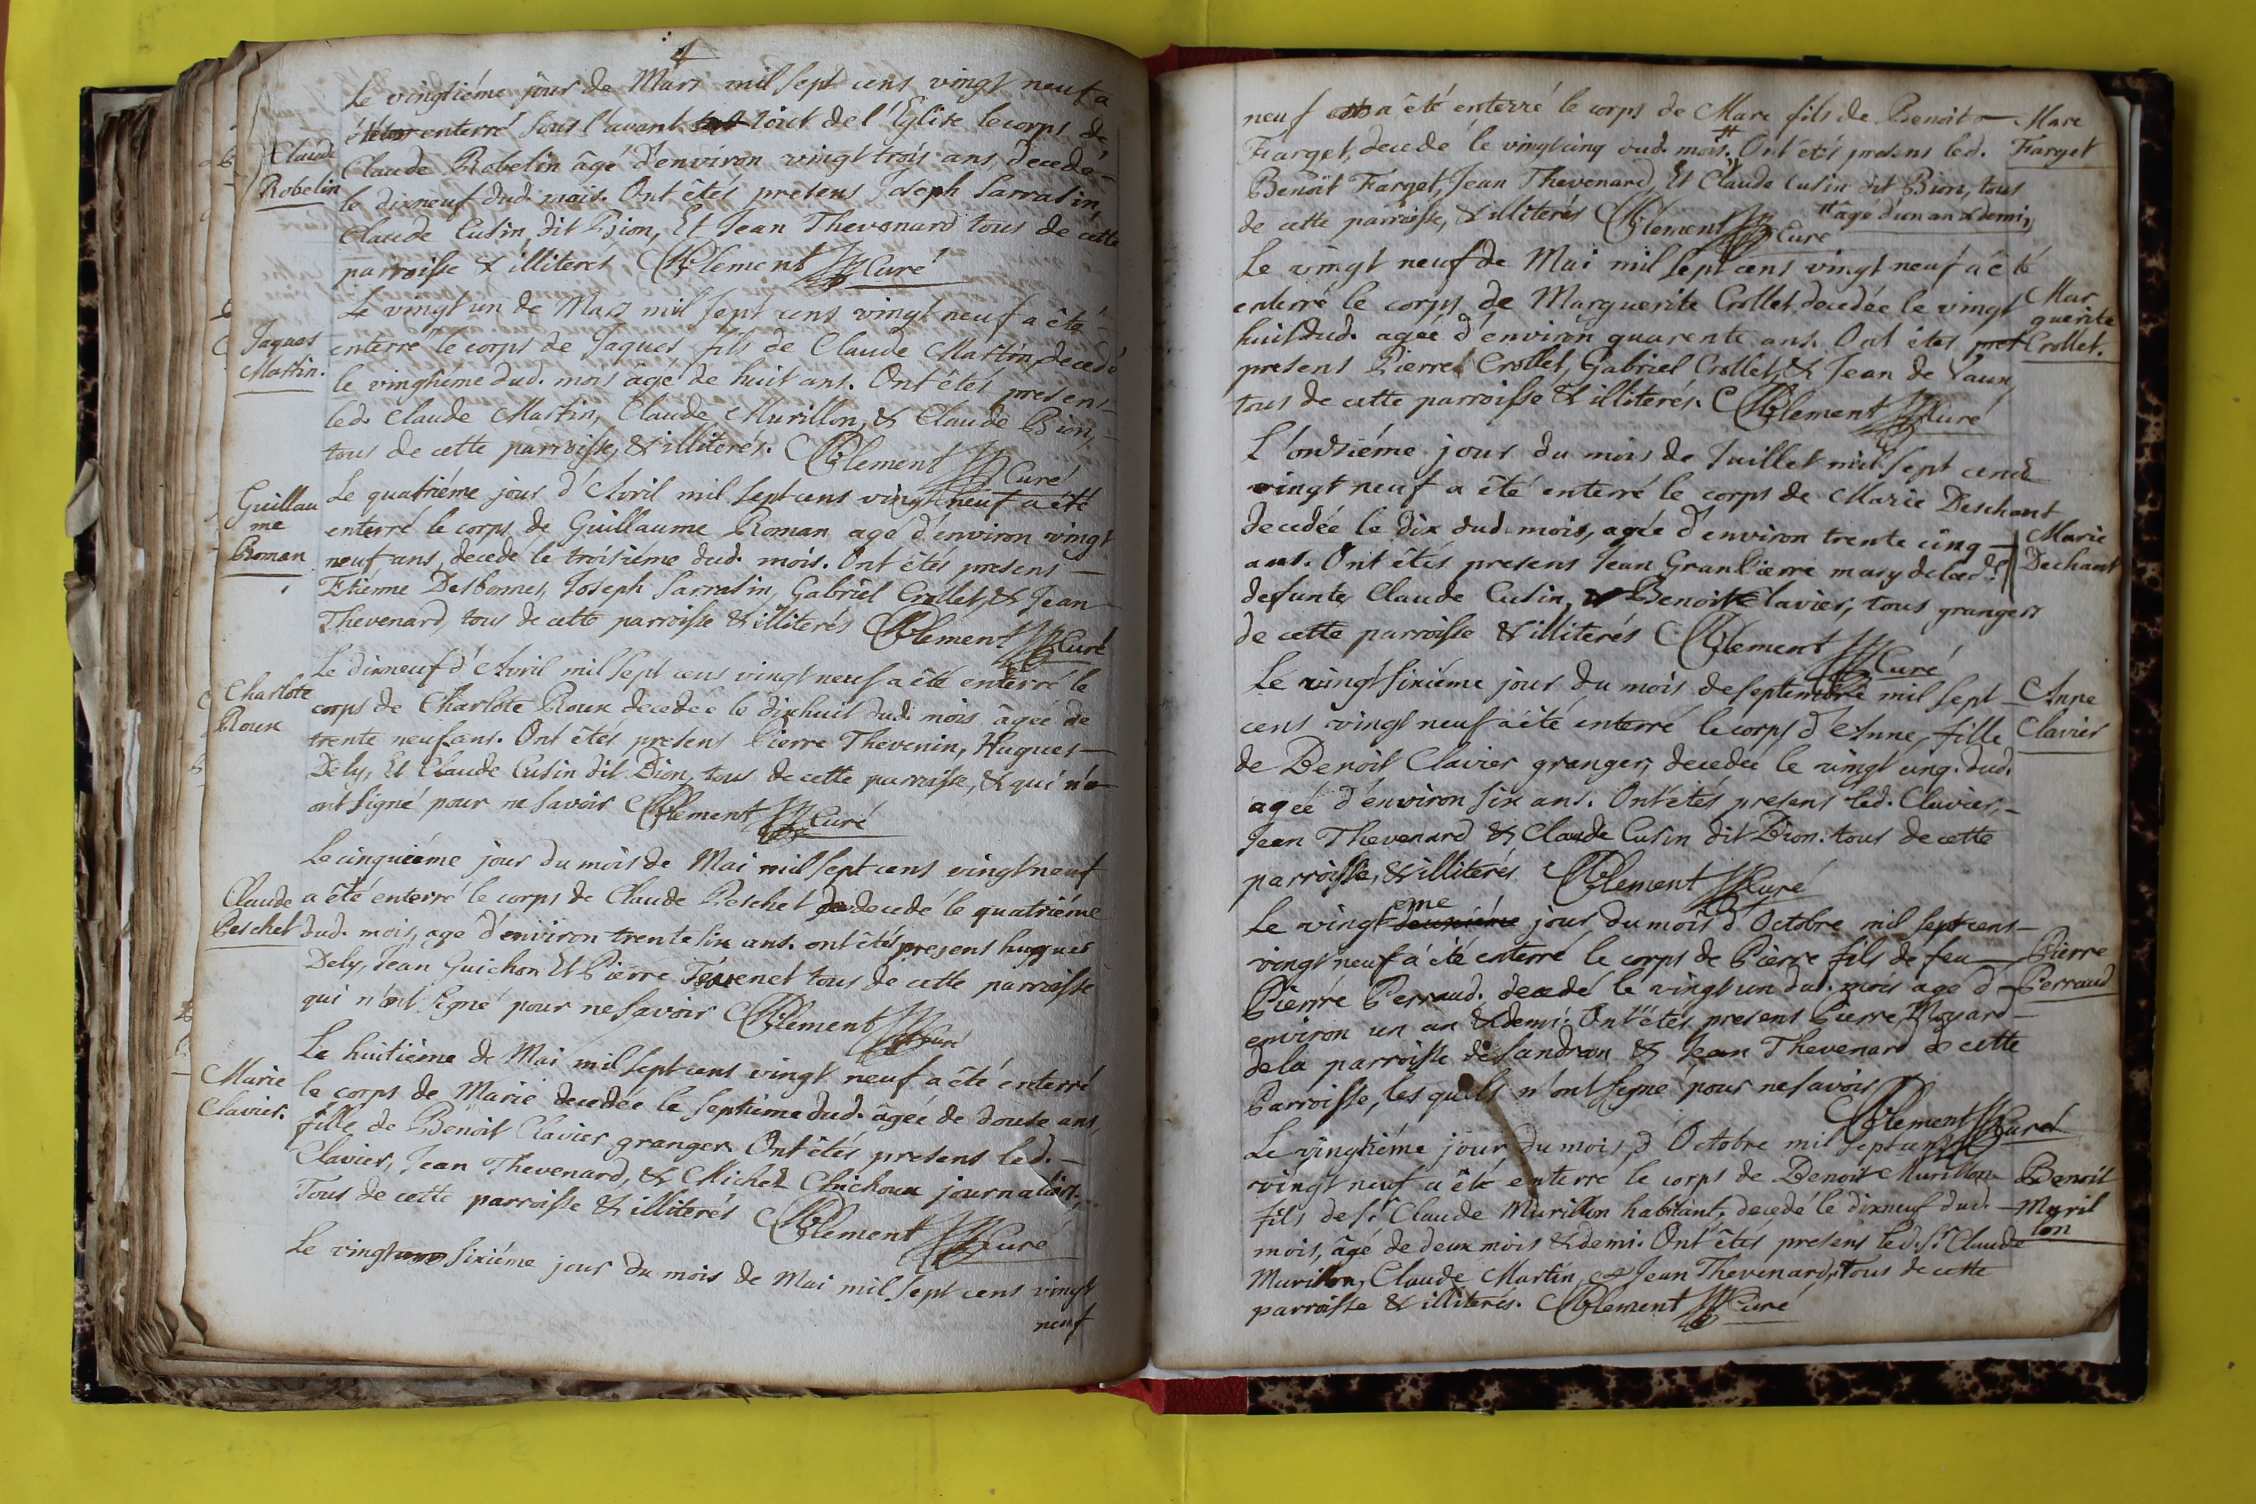 4
Le vingtiéme jour de Mars mil sept cens vingt neuf a
été enterré sous l'avant toict de l'Eglise le corps de
Claude Robelin âgé d'environ vingt trois ans, decedé
le dixneuf dud. mois. Ont êtés presens Joseph Sarrasin,
Claude Cusin dit Bion, Et Jean Thevenard tous de cette
parroisse & illiterés Clement Curé
Claude
Robelin
Le vingt un de Mars mil sept cens vingt neuf a êté
enterré le corps de Jaques fils de Claude Martin decedé
le vingtiéme dud. mois âgé de huit ans. Ont êtés presens
led. Claude Martin, Claude Murillon, & Claude Bion,
tous de cette parroisse, & illiterés. Clement Curé
Jaques
Martin.
Le quatriéme jour d'Avril mil sept cens vingt neuf a été
enterré le corps de Guillaume Roman agé d'environ vingt
neuf ans, decedé le troisiéme dud. mois. Ont êtés presens
Etienne Desbonnes, Joseph Sarrasin, Gabriel Crollet, & Jean
Thevenard, tous de cette parroisse & illiterés Clement Curé
Guillau
me
Roman
Le dixneuf d'Avril mil sept cens vingt neuf a êté enterré le
corps de Charlote Roux decedée le dixhuit dud. mois âgée de
trente neuf ans. Ont êtés presens Pierre Thevenin, Hugues
Dely, Et Claude Cusin dit Bion, tous de cette parroisse, & qui n'
ont signé pour ne savoir Clement Curé
Charlote
Roux
Le cinquiéme jour du mois de Mai mil sept cens vingt neuf
a êté enterré le corps de Claude Peschet decedé le quatriéme
dud. mois, agé d'environ trente six ans. ont êtés presens hugues
Dely, Jean Guichon Et Pierre Tévenet tous de cette parroisse
qui n'ont signé pour ne savoir Clement Curé
Claude
Peschet
Le huitiéme de Mai mil sept cens vingt neuf a êté enterré
le corps de Marie decedée le septiéme dud. âgée de douse ans,
fille de Benoit Clavier granger. Ont êtés presens led.
Clavier, Jean Thevenard, & Michel Chichoux journalier,
Tous de cette parroisse & illiterés Clement Curé
Marie
Clavier.
Le vingt sixiéme jour du mois de Mai mil sept cens vingt
neuf
neuf a êté enterré le corps de Marc fils de Benoit
Farget, decedé le vingt cinq dud. mois. # Ont étés presens led.
Benoit Farget, Jean Thevenard, Et Claude Cusin dit Bion, tous
de cette parroisse, & illiterés Clement Curé # âgé d'un an & demi,
Marc
Farget
Le vingt neuf de Mai mil sept cens vingt neuf a ê té
enterré le corps de Marguerite Crollet, decedée le vingt
huit dud. agée d'environ quarente ans. Ont êtés
presens Pierre Crollet, Gabriel Crollet, & Jean de Vaux,
tous de cette parroisse & illiterés. Clement Curé
Mar
guerite
Crollet.
L'onsiéme jour du mois de Juillet mil sept cens
vingt neuf a êté enterré le corps de Marie Deschant
decedée le dix dud. mois, agée d'environ trente cinq
ans. Ont êtés presens Jean Granpierre mary de lad.
defunte, Claude Cusin, Benoit Clavier, tous grangers
de cette parroisse & illiterés Clement Curé
Marie
Dechant
Le vingt sixiéme jour du mois de septembre mil sept
cens vingt neuf a été enterré le corps d'Anne, fille
de Benoit Clavier granger, decedée le vingt cinq. dud.
agée d'environ six ans. Ont êtés presens led. Clavier,
Jean Thevenard & Claude Cusin dit Bion. tous de cette
parroisse, & illiterés Clement Curé
Anne
Clavier
Le vingt eme jour du mois d'Octobre mil sept cens
vingt neuf a été enterré le corps de Pierre fils de feu
Pierre Perraud, decedé le vingt un dud. mois agé d'
environ un an & demi. Ont êtés presens Pierre Moyard
de la parroisse de Sandran & Jean Thevenard de cette
Parroisse, les quels n'ont signé pour ne savoir
Clement Curé
Pierre
Perraud
Le vingtiéme jour du mois d'Octobre mil sept cens
vingt neuf a êté enterré le corps de Benoit Murillon
fils de Sr. Claude Murillon habitant, decedé le dixneuf dud.
mois, âgé de deux mois & demi. Ont êtés presens led. Sr. Claude
Murillon, Claude Martin, & Jean Thevenard, Tous de cette
parroisse & illiterés. Clement Curé
Benoit
Muril
lon